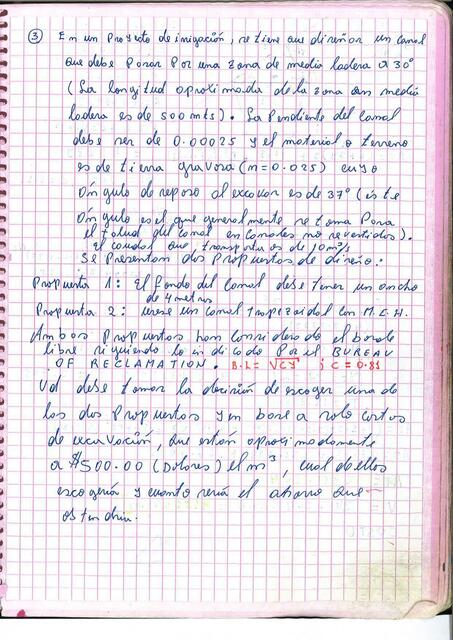 ③ En un Proyecto de irrigación, se tiene que diseñar un canal
que debe Pasar Por una zona de media ladera a 30°
(La longitud aproximada de la zona en media
ladera es de 500 mts). La Pendiente del Canal
debe ser de 0.00025 y el material o terreno
es de tierra gravosa (n=0.025) cuyo
ángulo de reposo al excavar es de 37° (este
ángulo es el que generalmente se toma Para
el talud del canal en canales no revestidos).
El caudal que transportar es de 10 m³/s
Se Presentan dos Propuestas de diseño:
Propuesta 1: El fondo del Canal debe tener un ancho
de 4 metros
Propuesta 2: usese un canal trapezoidal con M.E.H.
Ambas Propuestas han considerado el borde
libre siguiendo lo indicado Por el BUREAU
OF RECLAMATION. B.L= √CY ; C = 0.81
Ud debe tomar la decisión de escoger una de
las dos Propuestas y en base a solo costos
de excavación, que están aproximadamente
a $500.00 (Dolares) el m³, cual de ellos
escogería y cuanto sería el ahorro que